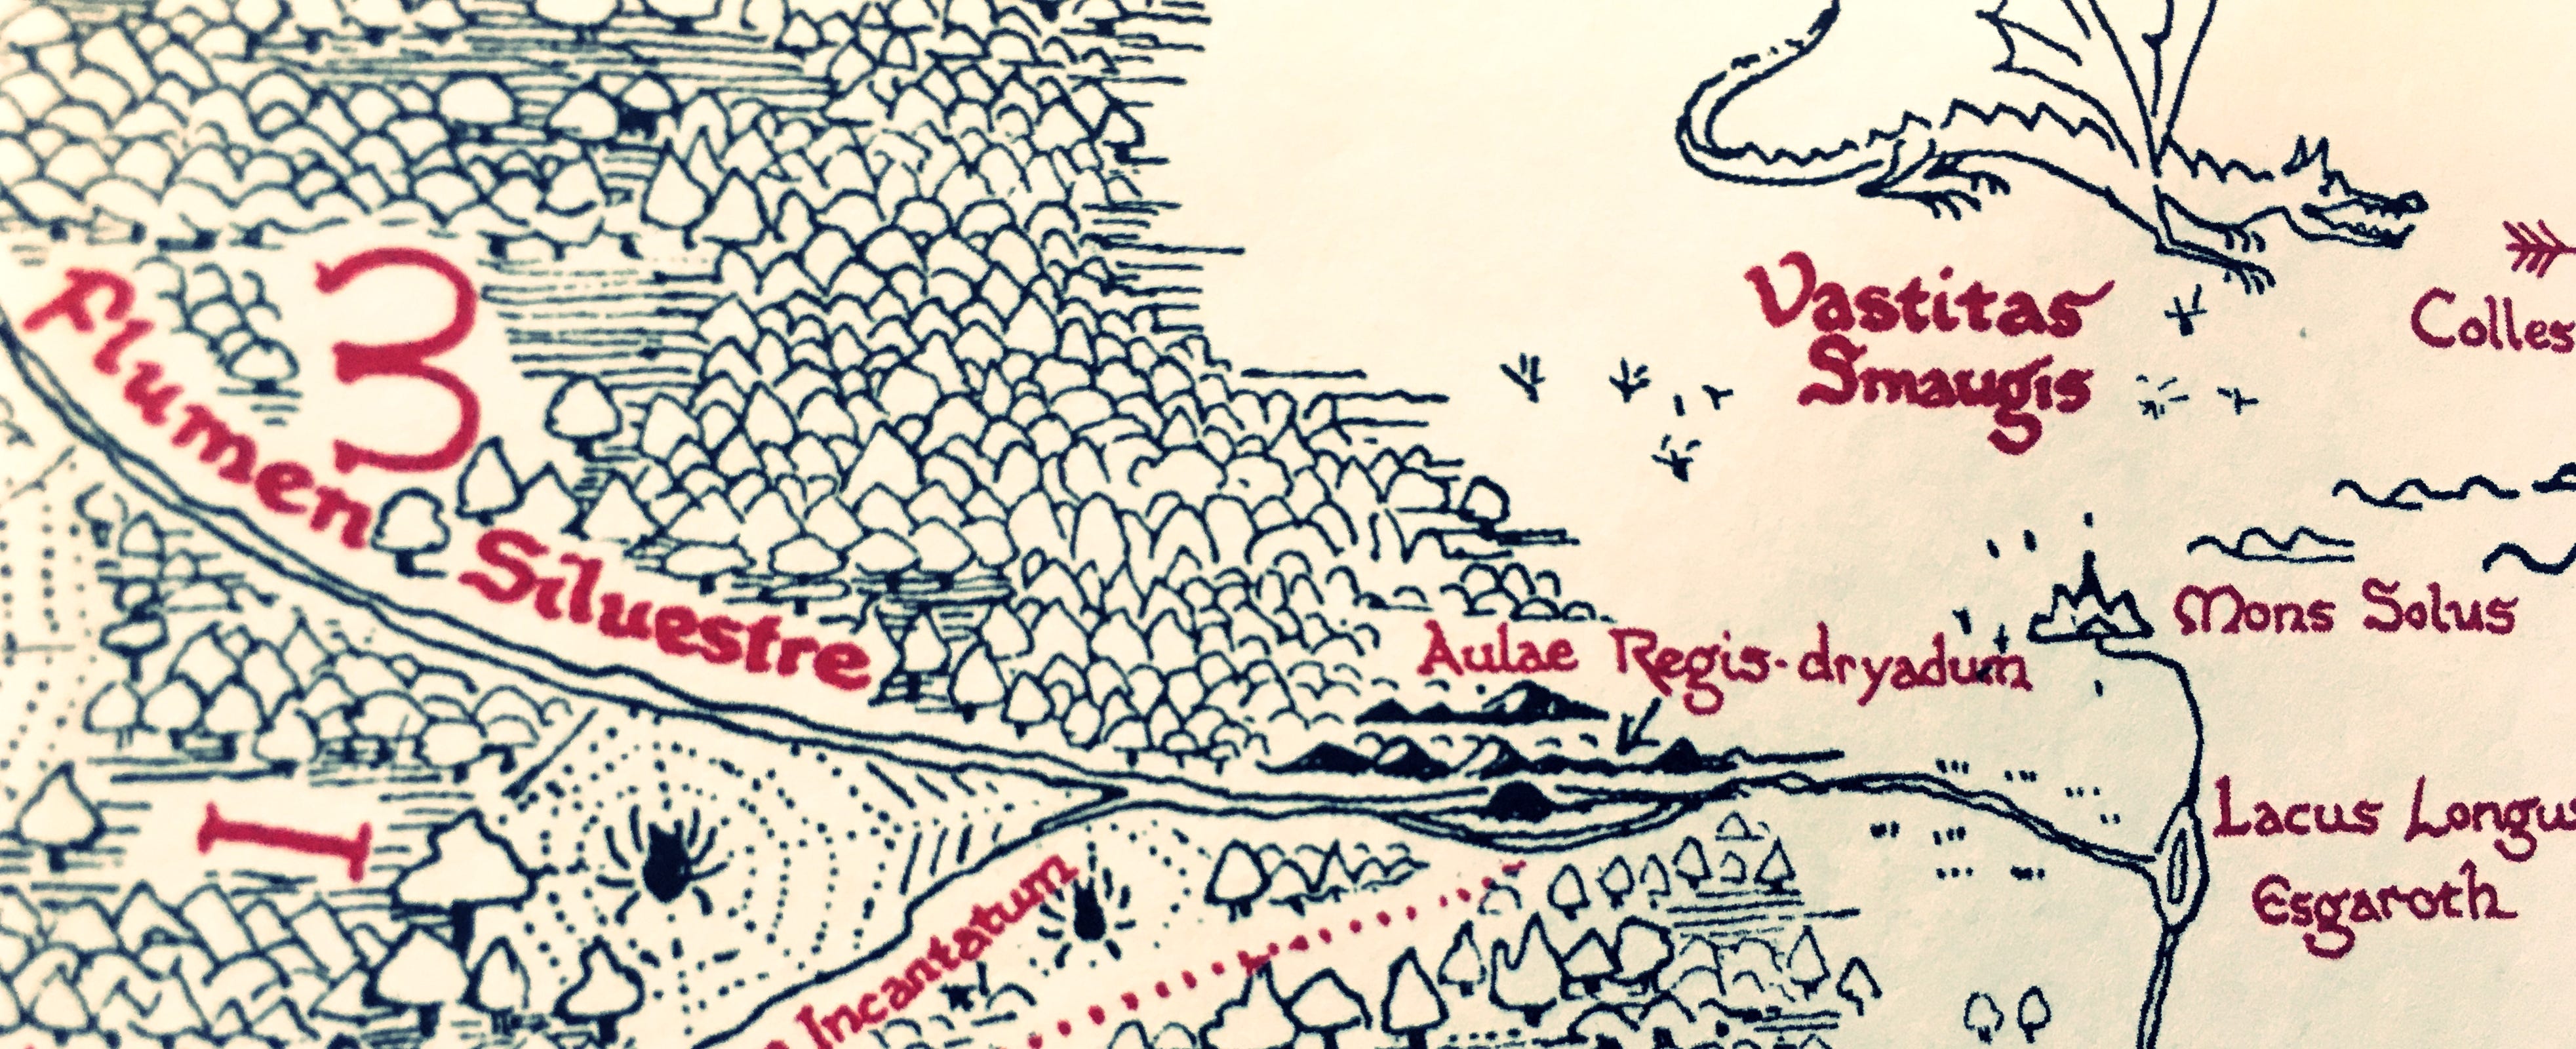 3
Flumen Siluestre
I
Incantatum
Vastitas
Smaugis
Colles
Mons Solus
Aulae Regis-dryadum
Lacus Longus
Esgaroth